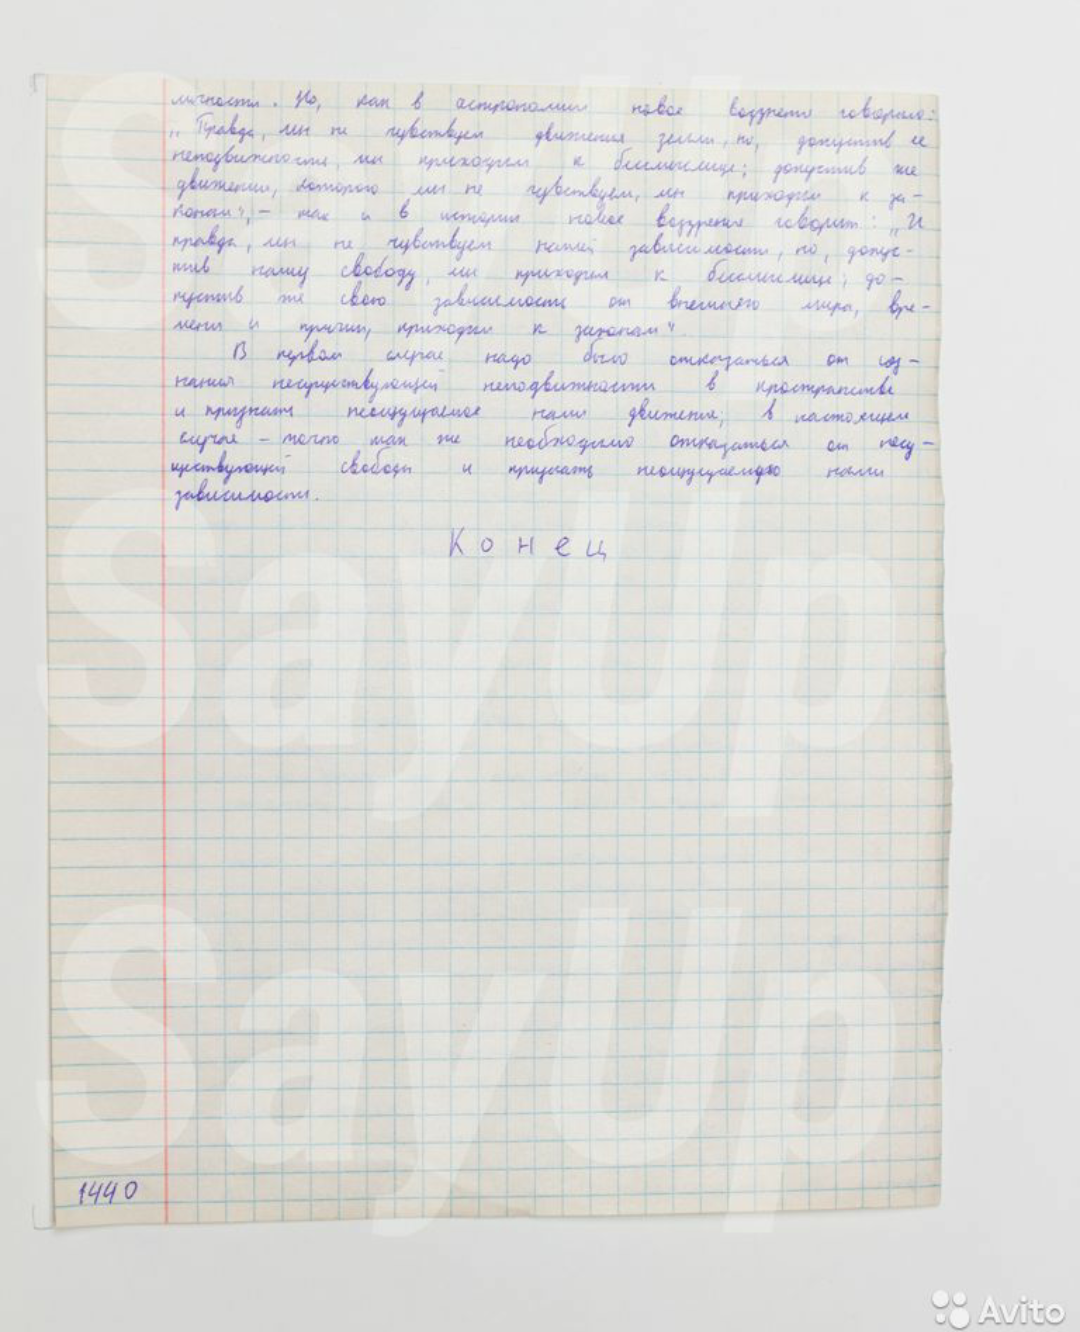 личности. Но, как в астрономии новое воззрение говорило:
„Правда, мы не чувствуем движения земли, но, допустив ее
неподвижность, мы приходим к бессмыслице; допустив же
движение, которого мы не чувствуем, мы приходим к за-
конам“, – так и в истории новое воззрение говорит: „И
правда, мы не чувствуем нашей зависимости, но, допус-
тив нашу свободу, мы приходим к бессмыслице; до-
пустив же свою зависимость от внешнего мира, вре-
мени и причин, приходим к законам“.
В первом случае надо было отказаться от соз-
нания несуществующей неподвижности в пространстве
и признать неощущаемое нами движение; в настоящем
случае – точно так же необходимо отказаться от несу-
ществующей свободы и признать неощущаемую нами
зависимость.
Конец
1440
SayUp
SayUp
SayUp
Avito